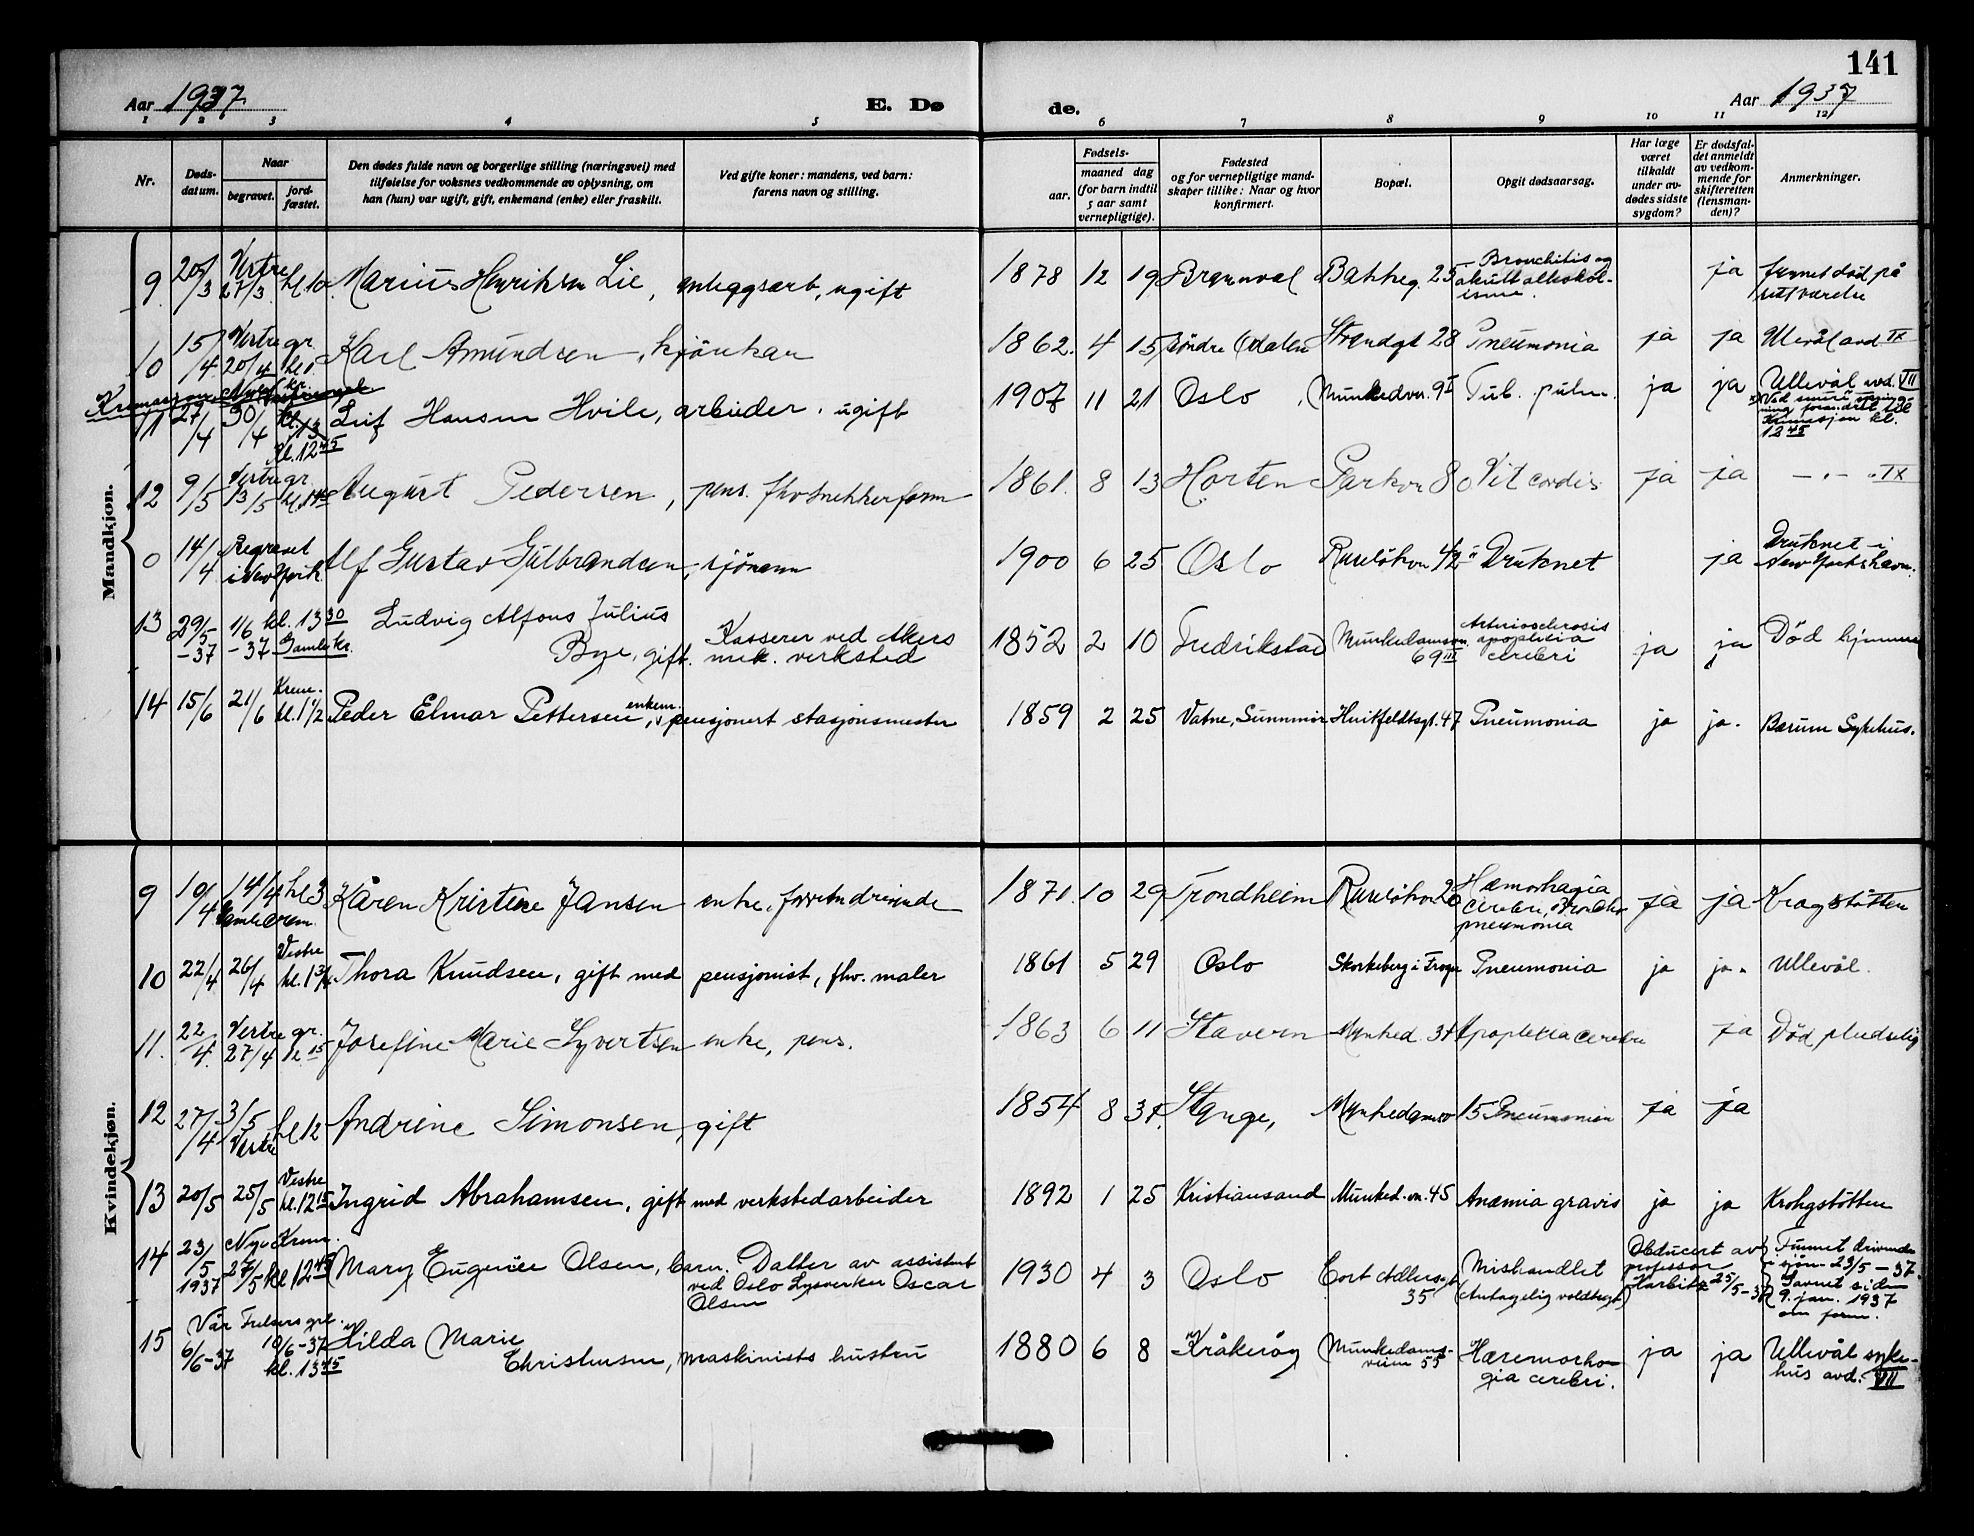 141
Aar 1937
E. Dø
de.
Aar 1937
1 2 3 4 5 6 7 8 9 10 11 12
Nr.
Døds-
datum.
Naar
begravet.
jord-
fæstet.
Den dødes fulde navn og borgerlige stilling (næringsvei) med
tilføielse for voksnes vedkommende av oplysning, om
han (hun) var ugift, gift, enkemand (enke) eller fraskilt.
Ved gifte koner: mandens, ved barn:
farens navn og stilling.
aar.
Fødsels-
maaned dag
(for barn indtil
5 aar samt
vernepligtige).
Fødested
og for vernepligtige mand-
skaper tillike: Naar og hvor
konfirmert.
Bopæl.
Opgit dødsaarsag.
Har læge
været
tilkaldt
under av-
dødes sidste
sygdom?
Er dødsfal-
det anmeldt
av vedkom-
mende for
skifteretten
(lensman-
den)?
Anmerkninger.
Mandkjøn.
9. 20/3 Vestre 27/3 kl 10 Marius Henriksen Lie, anleggsarb, ugift 1878 12 19 Bakkeg. 25 Bronchitis og
akutt alkohol-
isme. ja funnet død på
sitt værelse
10 15/4 Vestre gr. 20/4 kl 1 Karl Amundsen, kjörekar 1862. 4 15 Söndre Odalen Strandgt 28 Pneumonia ja ja Ulevål avd IX
11 27/4 30/4 kl. 13
kl. 12 45 Leif Hansen Hvile, arbeider. ugift 1907 11 21 Oslo Munkedvn. 9 I Tub. pulm. ja ja Ullevål avd. VII
12 45
12 9/5 Vestre gr. 13/5 August Pedersen, pens. fhv snekkerform 1861. 8 13 Horten Parkvn 8 Vit cordis ja ja — „ — IX
0 14/4 Begravet
i New York. Alf Gustav Gulbrandsen, sjömann 1900 6 25 Oslo Ruselökvn 42 Druknet ja Druknet i
New Yorks havn.
13 29/5 -37 1/6 -37 kl. 13 30 Gamle kr. Ludvig Alfons Julius
Bye, gift. Kasserer ved Akers
mek. verksted 1852 2 10 Fredrikstad Munkedamsvn.
69 III Arteriosclerosis
apoplexia
cerebri ja ja Död hjemme
14 15/6 21/6 Krem. kl. 1 1/2 Peder Elmar Pettersen, enkem. pensjonert stasjonsmester 1859 2 25 Vatne, Sunnmör Huitfeldtsgt. 47 Pneumonia ja ja. Bærum Sykehus.
Kvindekjøn.
9 10/4 14/4 kl 3 Gamle Krem. Karen Kristine Jansen enke, forretndrivende 1871. 10 29 Trondheim Ruselökvn 26 Hæmorhagia
cerebri, Broncho
pneumonia ja ja Kragstötten
10 22/4 26/4 Vestre kl. 1 3/4 Thora Knudsen, gift med pensjonist, fhv. maler 1861 5 29 Oslo Skorkeberg i Frogn Pneumonia ja ja. Ullevål.
11. 22/4. Vestre gr. 27/4 kl 15 Josefine Marie Syvertsen enke, pens. 1863 6 11 Stavern Munked. 37 Apoplexia cerebri ja Död pludselig
12 27/4 3/5 Vestre kl 12 Andrine Simonsen, gift 1854 8 31. Stange, Munkedamsv 15 Pneumonien ja ja
13 20/5 25/5 Vestre kl. 12 15 Ingrid Abrahamsen, gift med verkstedarbeider 1892 1 25 Kristiansand Munked.vn. 45 Anæmia gravis ja ja Krohgstötten
14 23/5 1937 Nye Krem. 27/5 kl 12 45 Mary Eugenie Olsen, barn. Datter av assistent
ved Oslo Lysverker Oscar
Olsen 1930 4 3 Oslo Cort Adlersgt
35 Mishandlet
(Antagelig voldtægt) Obducert av
professor
Harbitz 25/5-37 Funnet drivende
i sjöen 23/5-37.
Savnet siden
9. jan. 1937
15 6/6-37 Vår Frelsers grl.
10/6-37
kl. 13 45 Hilda Marie
Christensen, maskinists hustru 1880 6 8 Kråkeröy Munkedams-
veien 55 Hæremorha-
gia cerebri. ja ja Ullevål syke-
hus avd. VII